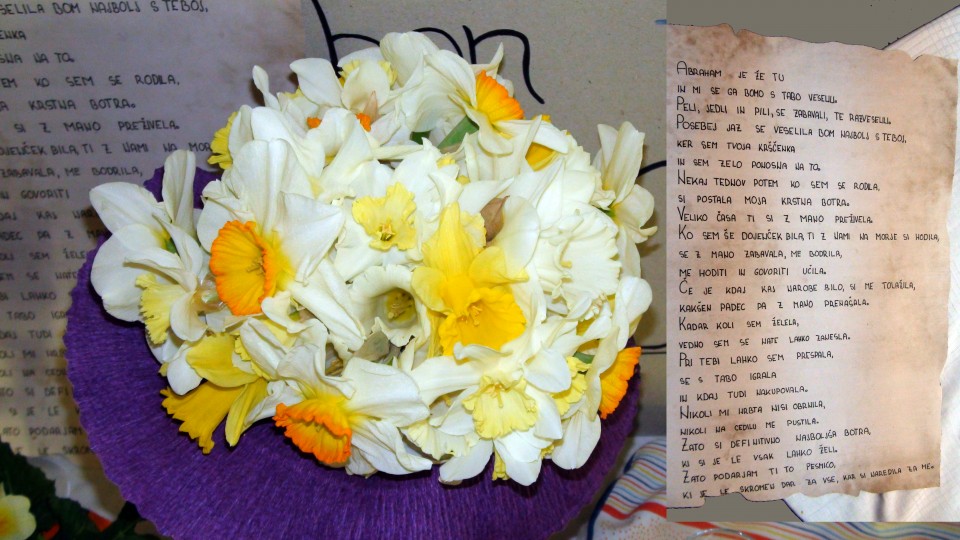 VESELILA BOM NAJBOLJ S TEBOJ,
TEM KO SEM SE RODILA,
KRSTNA BOTRA.
SI Z MANO PREŽIVELA.
DOJENČEK BILA, TI Z NAMI NA MOR
ZABAVALA, ME BODRILA,
IN GOVORITI
ben
ABRAHAM JE ŽE TU
IN MI SE GA BOMO S TABO VESELILI.
PELI, JEDLI IN PILI, SE ZABAVALI, TE RAZVESELILI,
POSEBEJ JAZ SE VESELILA BOM NAJBOLJ S TEBOJ,
KER SEM TVOJA KRŠČENKA
IN SEM ZELO PONOSNA NA TO.
NEKAJ TEDNOV POTEM KO SEM SE RODILA,
SI POSTALA MOJA KRSTNA BOTRA.
VELIKO ČASA TI SI Z MANO PREŽIVELA.
KO SEM ŠE DOJENČEK BILA, TI Z NAMI NA MORJE SI HODILA,
SE Z MANO ZABAVALA, ME BODRILA,
ME HODITI IN GOVORITI UČILA.
ČE JE KDAJ KAJ NAROBE BILO, SI ME TOLAŽILA,
KAKŠEN PADEC PA Z MANO PREHAJALA.
KADAR KOLI SEM ŽELELA,
VEDNO SEM SE NATE LAHKO ZANESLA.
PRI TEBI LAHKO SEM PRESPALA,
SE S TABO IGRALA
IN KDAJ TUDI NAKUPOVALA.
NIKOLI MI HRBTA NISI OBRNILA,
NIKOLI NA CEDILU ME PUSTILA.
ZATO SI DEFINITIVNO NAJBOLJŠA BOTRA,
KI SI JE LE VSAK LAHKO ŽELI.
ZATO PODARJAM TI TO PESMICO,
KI JE LE SKROMEN DAR ZA VSE, KAR SI NAREDILA ZA ME.